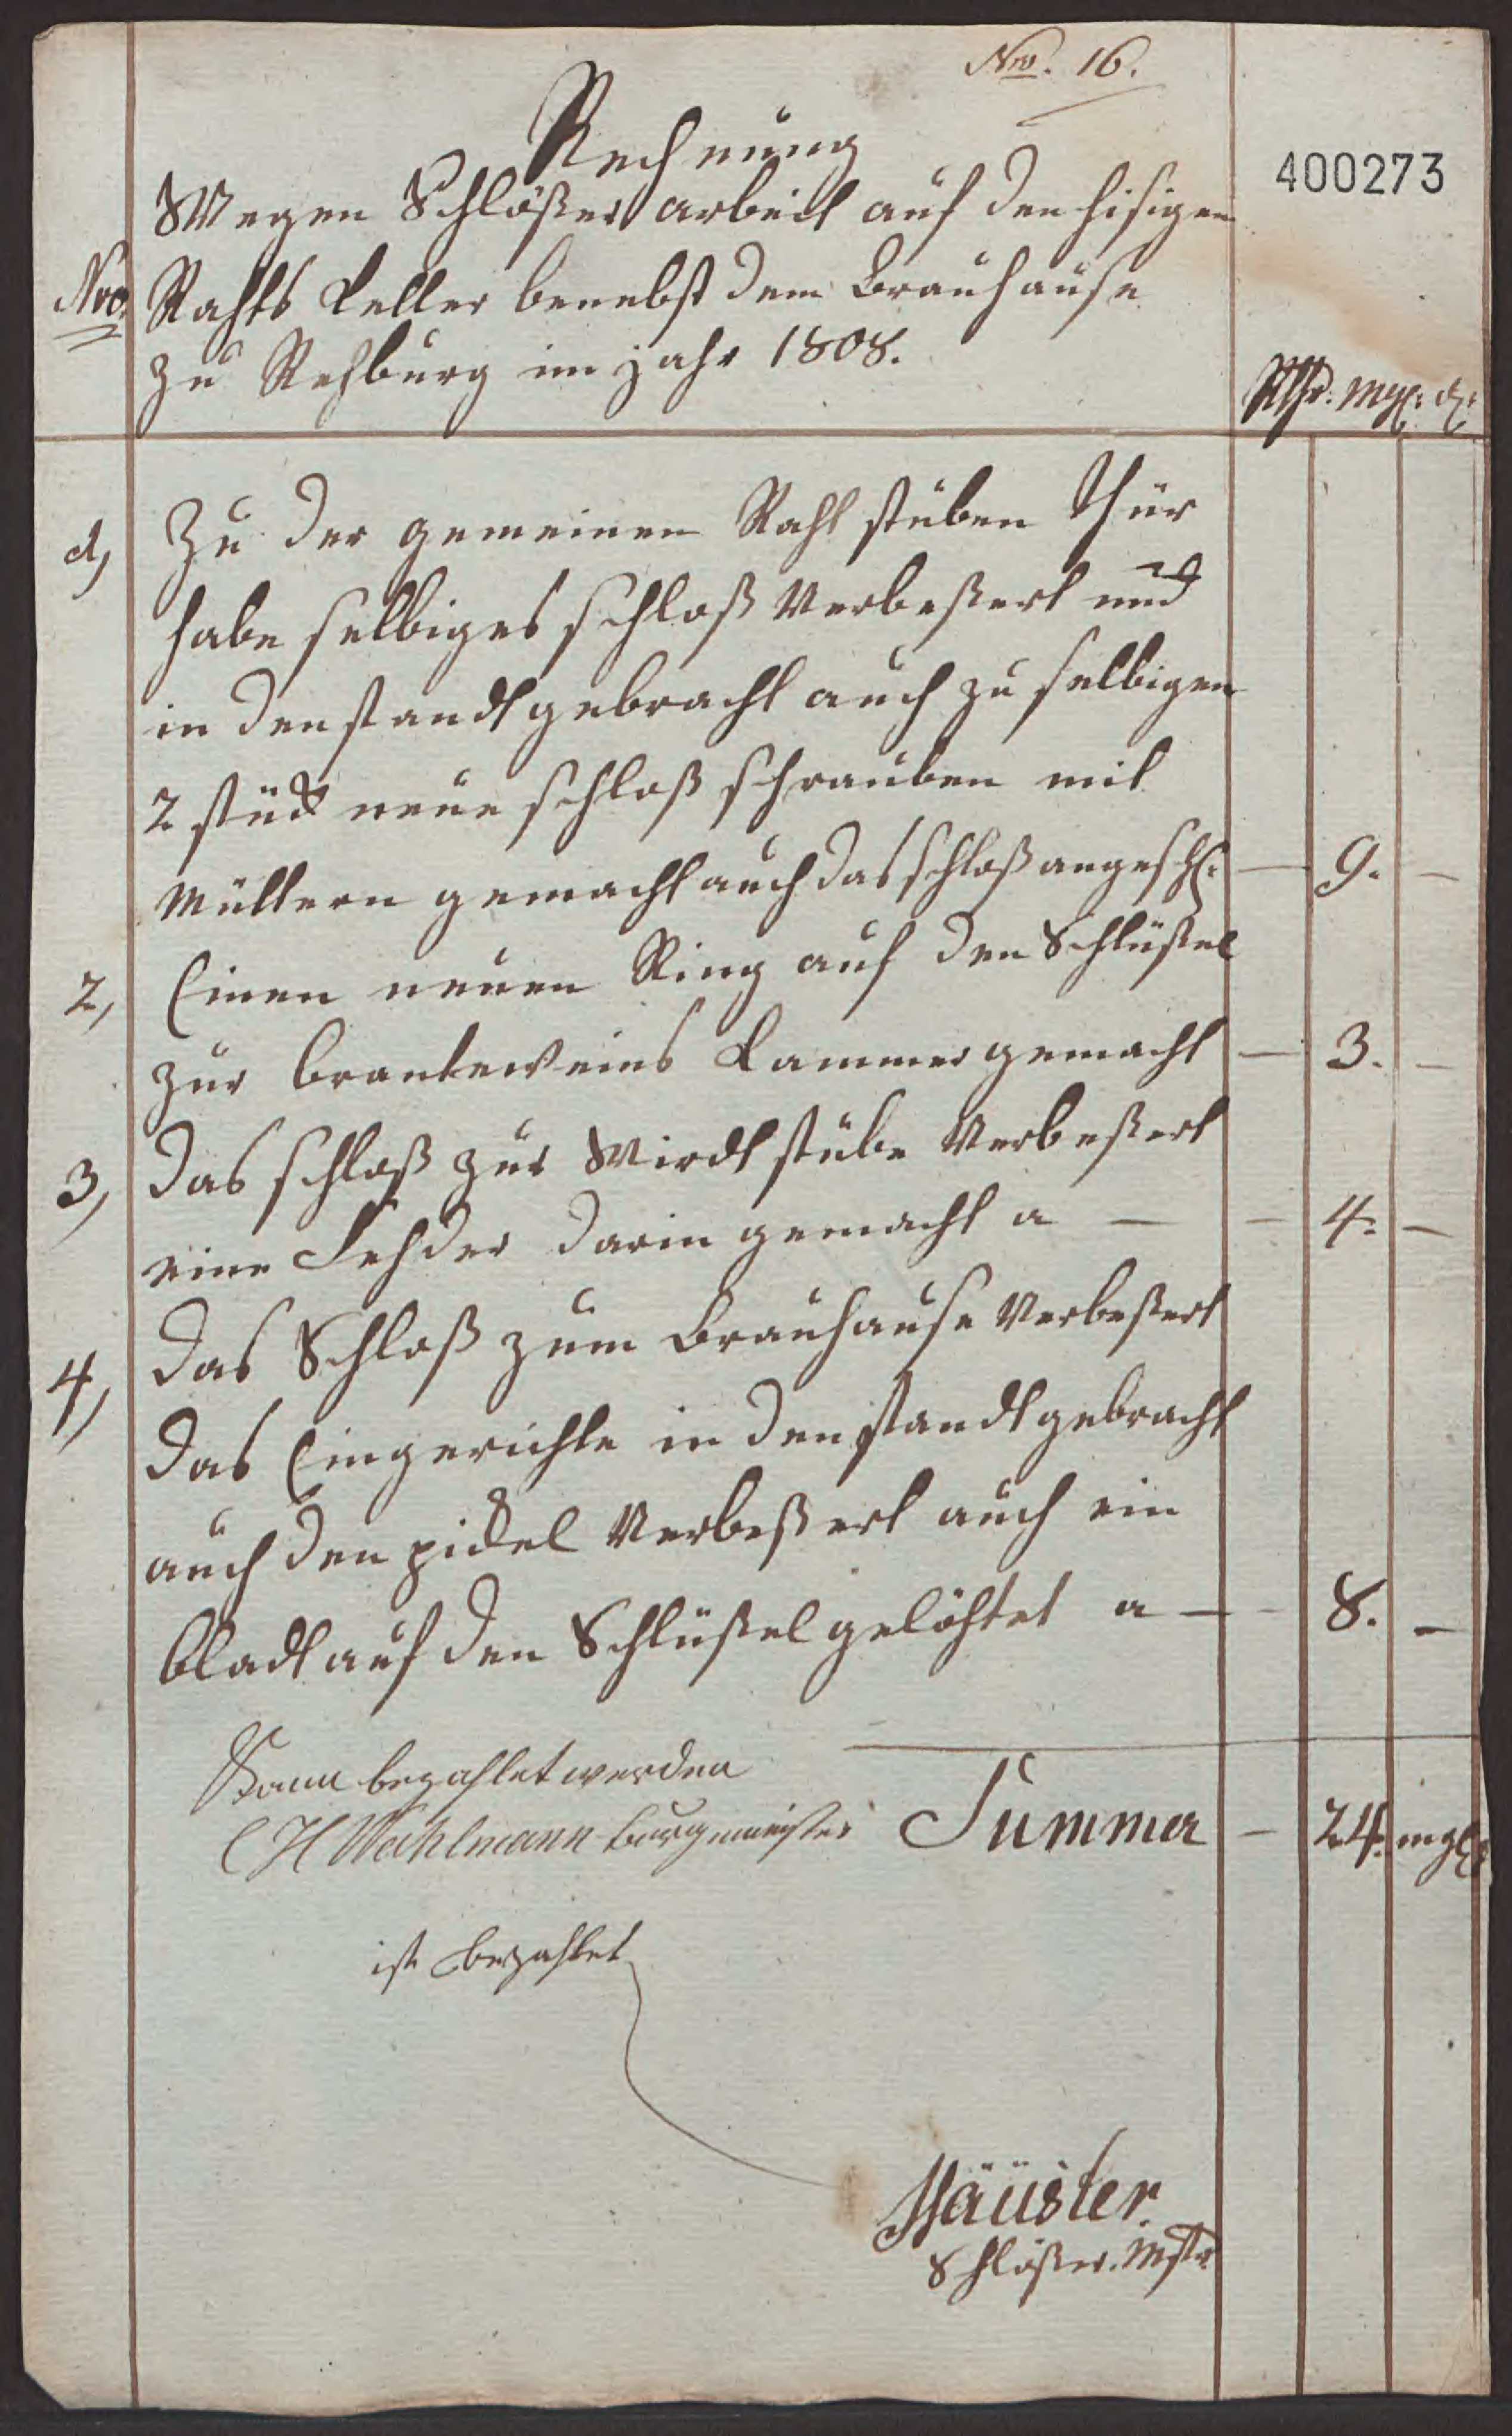 Nro. 16.
400273
Rechnung
Wegen Schlößer arbeit auf den hisigen
Nro. Rahts Keller benebst dem Brauhause
zu Rehburg im jahr 1808.
Rthr. mgl: d:
1, Zu der gemeinen Raht stuben thür
habe selbiges schloß Verbeßert und
in den standt gebracht auch zu selbigen
2 stück neue schloß schrauben mit
Müttern gemacht auch das schloß angeschl: — 9. —
2, Einen neuen Ring auf den Schlüßel
zur branteweins Kammer gemacht — 3. —
3, das schloß zur Wirdt stube Verbeßert
eine Fehder darin gemacht a — — 4. —
4, das Schloß zum Brauhause Verbeßert
das Eingerichte in den standt gebracht
auch den pickel Verbeßert auch ein
bladt auf den Schlüßel gelöhtet a — — 8. —
Kann bezahlet werden
CH Wahlmann Burgmeister Summa — 24. mgl:
ist bezahlet
Häuster
Schlößer. Mstr.